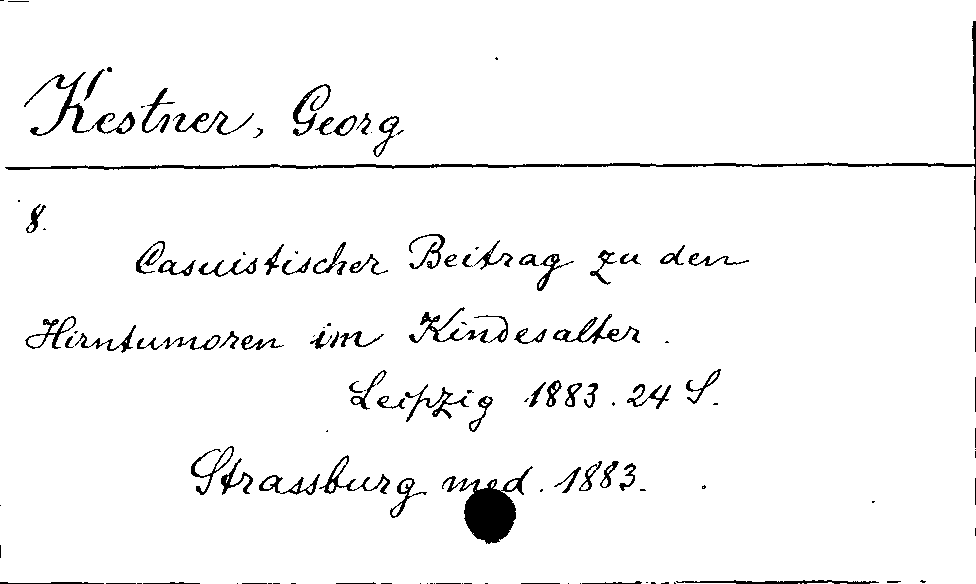 Kestner, Georg
8.
Casuistischer Beitrag zu den
Hirntumoren im Kindesalter.
Leipzig 1883. 24 S.
Strassburg med. 1883.